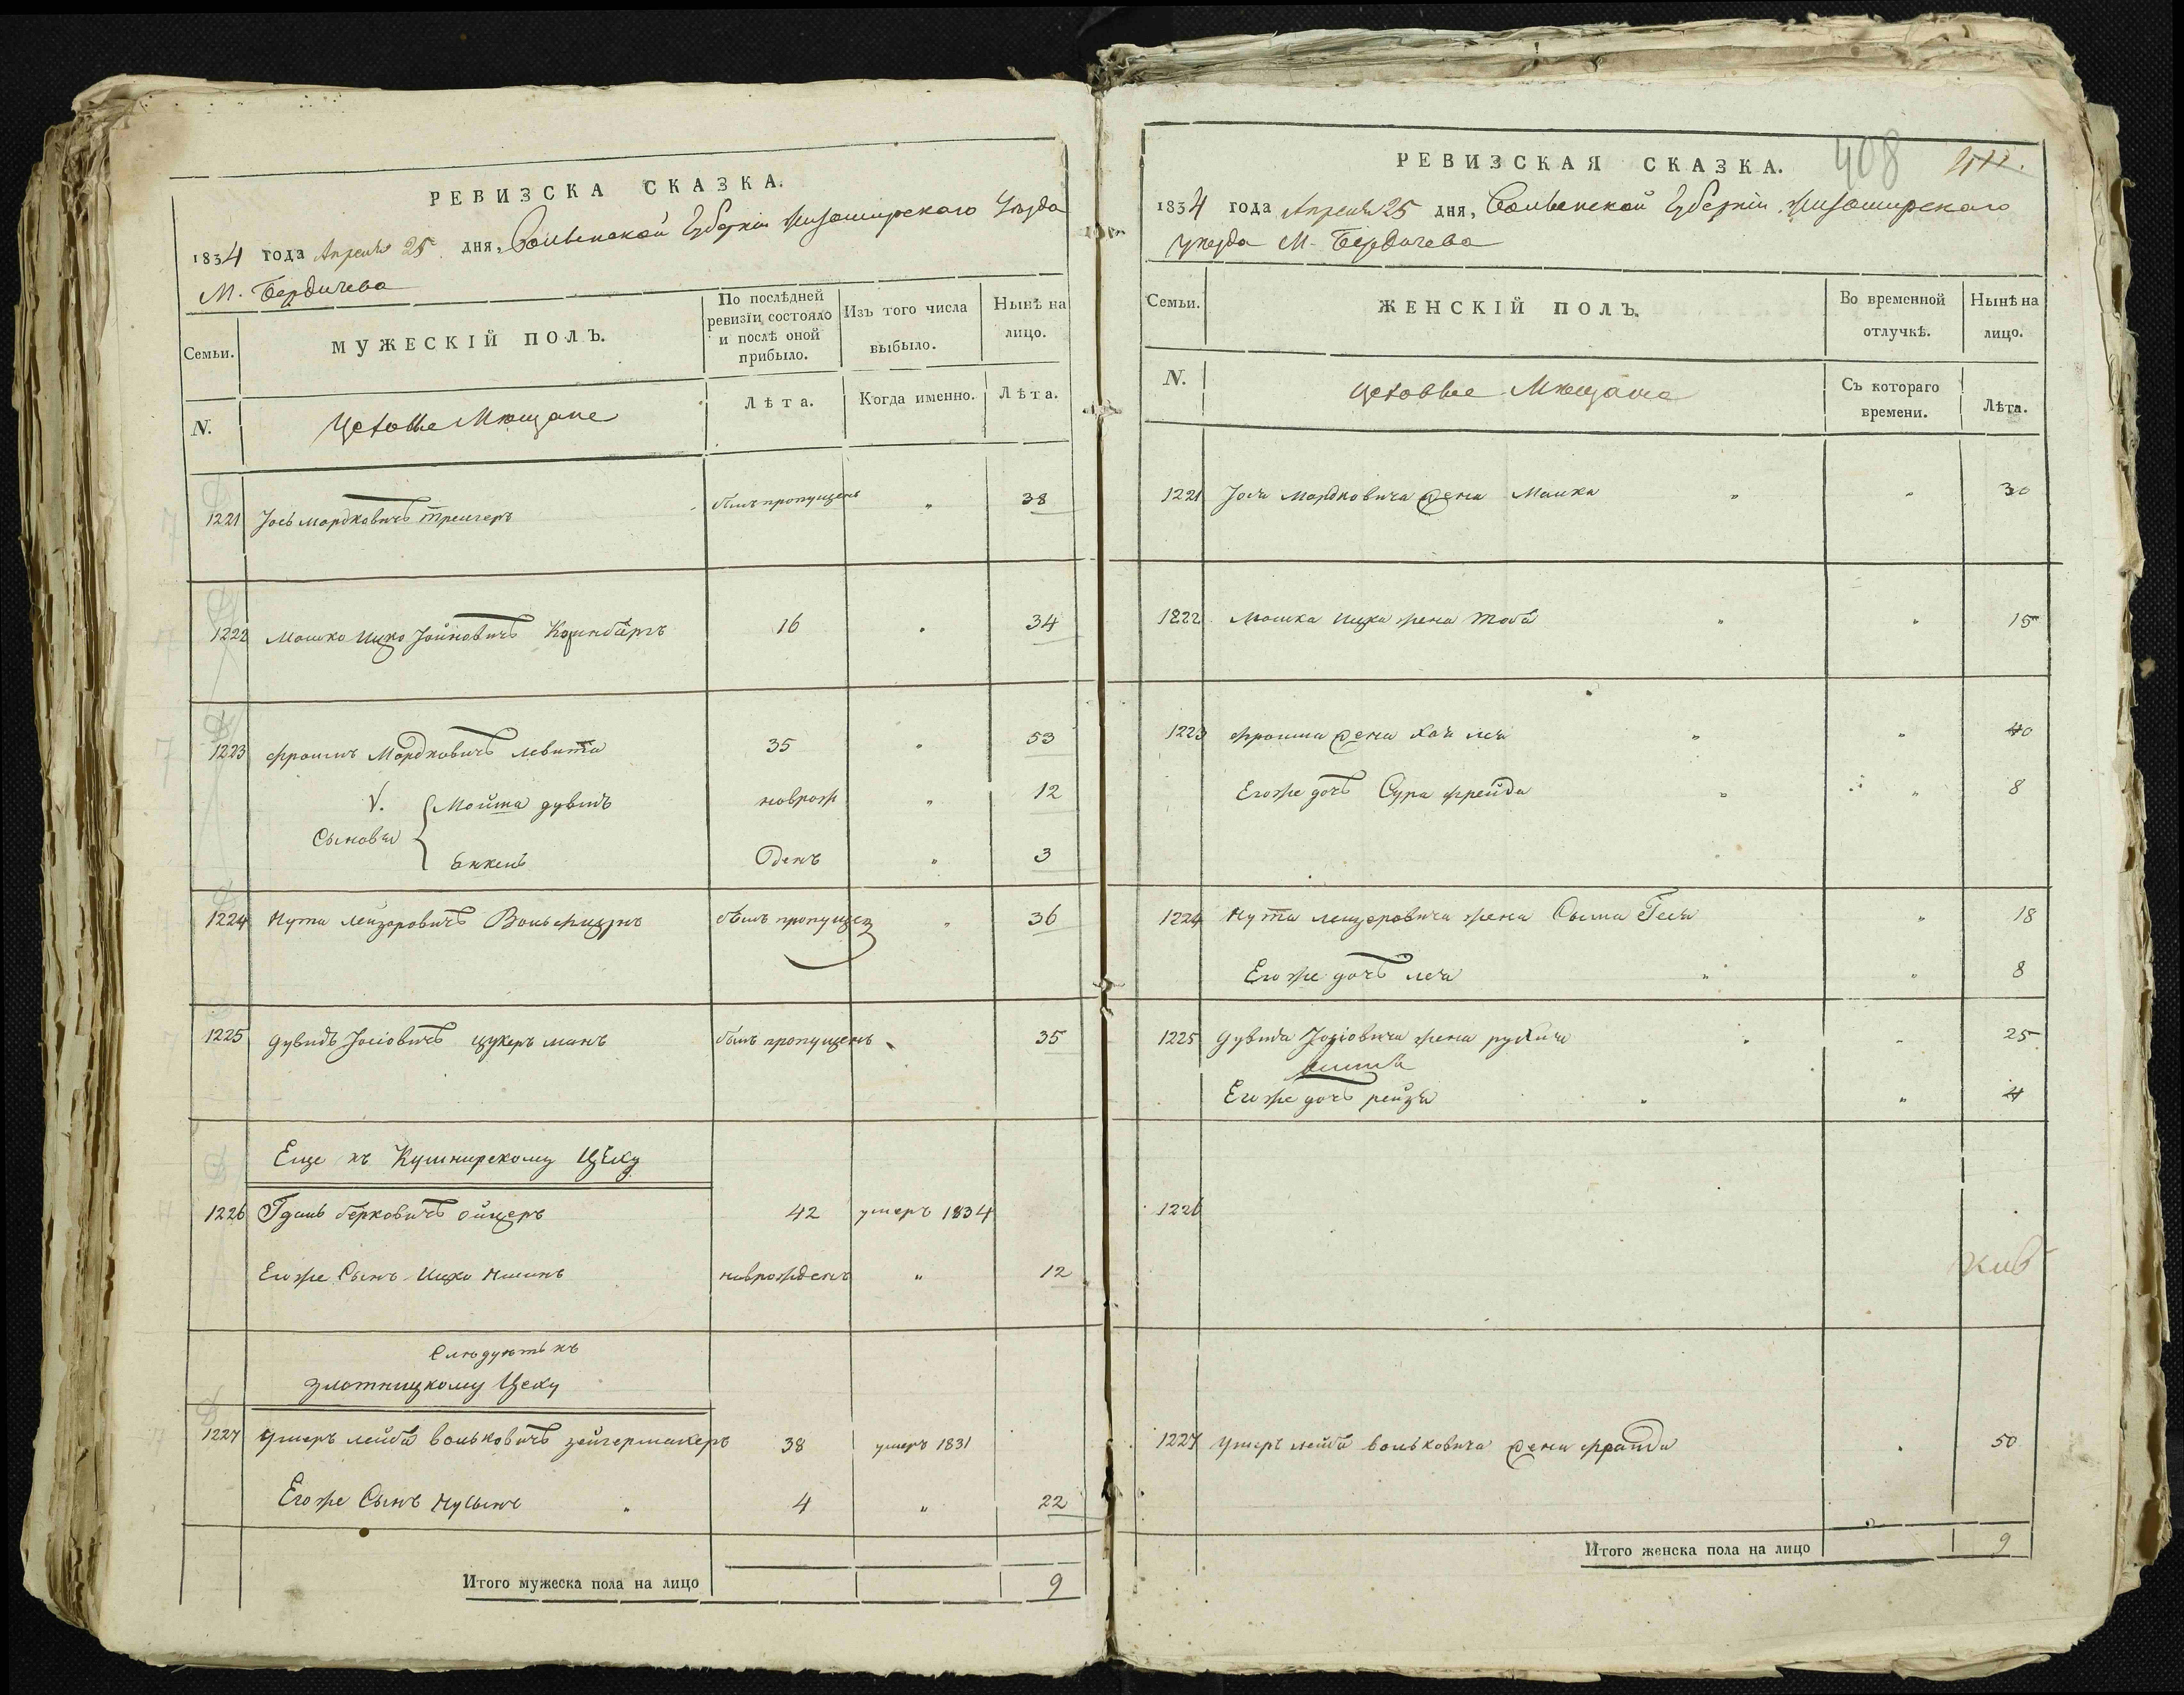 РЕВИЗСКА СКАЗКА.
1834 года Апреля 25 дня, Волынской Губерніи Житомирского Уезда
М. Бердичева
Семьи.
МУЖЕСКІЙ ПОЛЪ.
По послѣдней ревизіи состояло и послѣ оной прибыло.
Изъ того числа выбыло.
Нынѣ на лицо.
N.
Цеховые Мещане
Лѣта.
Когда именно.
Лѣта.
1221 Іось Мордковичъ былъ пропущенъ " 38
1222 Мошко Ицко 16 " 34
1223 Фроимъ Мордковичъ Левита 35 " 53
V. Сыновья { Мойша Дувидъ новрож " 12
денъ " 3
1224 Нута Лейзоровичъ былъ пропущен " 36
1225 Дувидъ Іосіовичъ Цукерманъ былъ пропущенъ 35
Еще къ Кушнирскому Цеху
1226 Берковичъ 42 умеръ 1834
Егоже Сынъ Ицко новрожденъ " 12
Следуютъ къ
Злотницкому Цеху
1227 Умеръ Лейба Вольковичъ Зейгермахеръ 38 умеръ 1831
Егоже Сынъ Нусынъ " 4 " 22
Итого мужеска пола на лицо 9
408
РЕВИЗСКАЯ СКАЗКА.
1834 года Апреля 25 дня, Волынской Губерніи Житомирского
Уезда М. Бердичева
Семьи.
ЖЕНСКІЙ ПОЛЪ.
Во временной отлучкѣ.
Нынѣ на лицо.
N.
Цеховые Мещане
Съ котораго времени.
Лѣта.
1221 Іося Мордковича жена Малка " " 30
1222 Мошка Ицка жена Тоба " " 15
1223 Фроима жена Хая Лея " " 40
Егоже дочь Сура Фрейда " " 8
1224 Нута Лейзоровича жена " 18
Егоже дочь Лея " " 8
1225 Дувида Іосіовича жена " " 25
Егоже дочь Рейзя " " 4
1226
1227 Умеръ Лейба Вольковича жена " 50
Итого женска пола на лицо 9